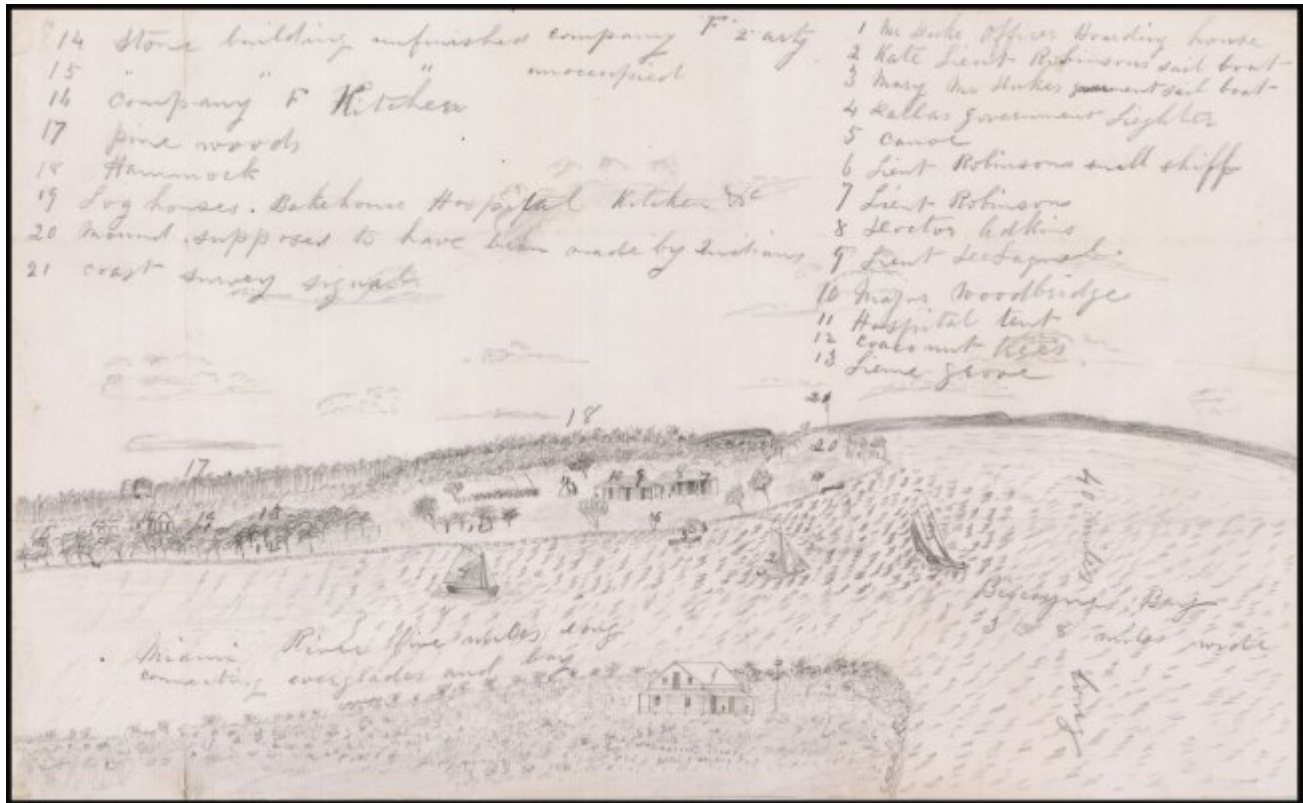 14 Stone building unfinished company "F" 2 arty
15 " " " unoccupied
16 company F Kitchen
17 pine woods
18 Hammock
19 Log houses. Bakehouse Hospital Kitchen &c
20 Mound supposed to have been made by Indians
21 coast survey signal
1 Mr Duke Officer Boarding house
2 Kate Lieut Robinsons sail boat
3 Mary Mr Dukes sail boat
4 government Lighter
5 canoe
6 Lieut Robinsons small skiff
7 Lieut Robinsons
8 Doctor Adkins
9 Lieut
10 Major Woodbridge
11 Hospital tent
12 cocoanut trees
13 Lime grove
18
21
17
20
40 miles long
Biscayne Bay
3 to 8 miles wide
Miami River five miles long
connecting everglades and bay